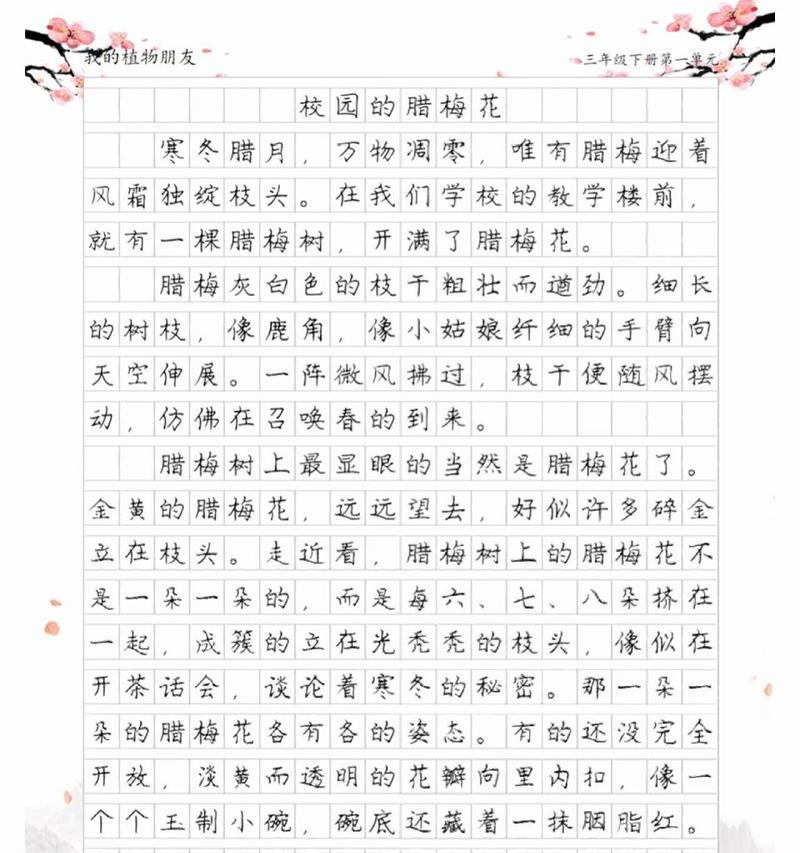 我的植物朋友
三年级下册第一单元
校园的腊梅花
寒冬腊月，万物凋零，唯有腊梅迎着
风霜独绽枝头。在我们学校的教学楼前，
就有一棵腊梅树，开满了腊梅花。
腊梅灰白色的枝干粗壮而遒劲。细长
的树枝，像鹿角，像小姑娘纤细的手臂向
天空伸展。一阵微风拂过，枝干便随风摆
动，仿佛在召唤春的到来。
腊梅树上最显眼的当然是腊梅花了。
金黄的腊梅花，远远望去，好似许多碎金
立在枝头。走近看，腊梅树上的腊梅花不
是一朵一朵的，而是每六、七、八朵挤在
一起，成簇的立在光秃秃的枝头，像似在
开茶话会，谈论着寒冬的秘密。那一朵一
朵的腊梅花各有各的姿态。有的还没完全
开放，淡黄而透明的花瓣向里内扣，像一
个个玉制小碗，碗底还藏着一抹胭脂红。